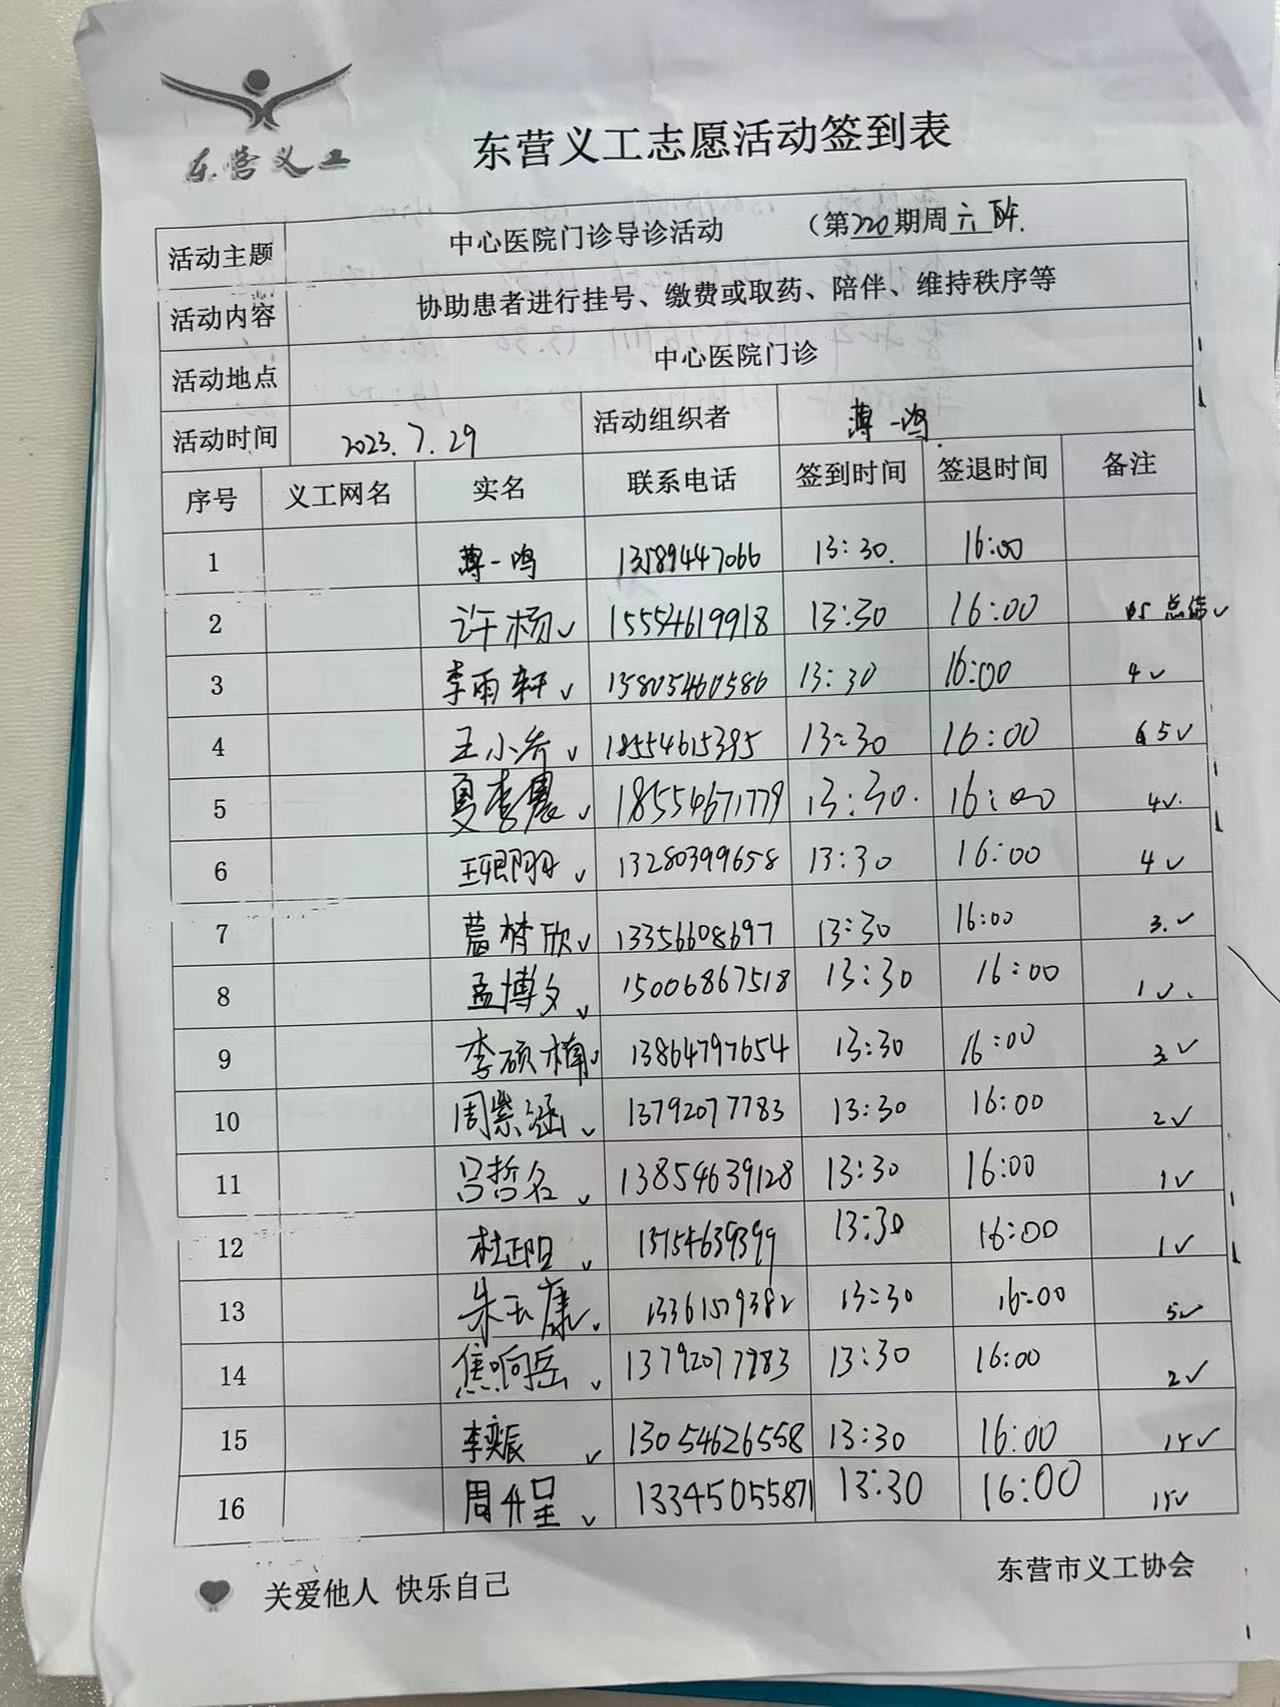 东营义工
东营义工志愿活动签到表
活动主题 中心医院门诊导诊活动 (第220期周六
活动内容 协助患者进行挂号、缴费或取药、陪伴、维持秩序等
活动地点 中心医院门诊
活动时间 2023.7.29 活动组织者 薄一鸣
序号 义工网名 实名 联系电话 签到时间 签退时间 备注
1 薄一鸣 13589447066 13:30. 16:00
2 许杨✓ 15554619918 13:30 16:00 总结✓
3 李雨轩✓ 13805460586 13:30 16:00 4✓
4 王小乔✓ 18554615395 13:30 16:00 5✓
5 夏李晨✓ 18554671779 13:30. 16:00 4✓.
6 ✓ 13280399658 13:30 16:00 4✓
7 梦欣✓ 13356608697 13:30 16:00 3.✓
8 孟博文✓ 15006867518 13:30 16:00 1✓.
9 李硕楠✓ 13864797654 13:30 16:00 3✓
10 周紫涵✓ 13792077783 13:30 16:00 2✓
11 吕哲名✓ 13854639128 13:30 16:00 1✓
12 杜正阳✓ 13754639399 13:30 16:00 1✓
13 朱玉康✓ 13361579382 13:30 16:00 5✓
14 焦响岳✓ 13792077783 13:30 16:00 2✓
15 李奕辰✓ 13054626558 13:30 16:00 15✓
16 周升呈✓ 13345055871 13:30 16:00 15✓
关爱他人 快乐自己 东营市义工协会